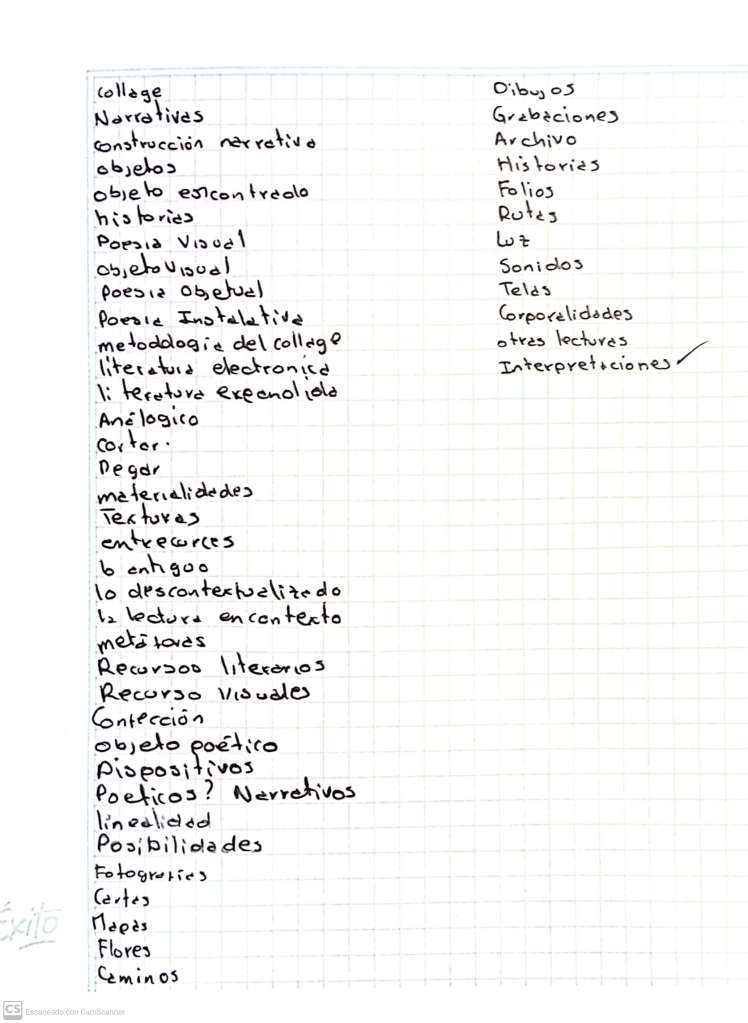 collage
Narrativas
construcción narrativa
objetos
objeto encontrado
historias
Poesia Visual
Objeto Visual
Poesia Objetual
Poesia Instalativa
metodologia del collage
literatura electronica
literatura expandida
Análogico
cortar.
Pegar
materialidades
Texturas
entrecurces
lo antiguo
lo descontextualizado
la lectura en contexto
metáforas
Recursos literarios
Recurso Visuales
Confección
objeto poético
Dispositivos
Poeticos? Narrativos
linealidad
Posibilidades
Fotografias
Cartas
Mapas
Flores
Caminos
Dibujos
Grabaciones
Archivo
Historias
Folios
Rutas
Luz
Sonidos
Telas
Corporalidades
otras lecturas
Interpretaciones
Éxito
CS Escaneado con CamScanner